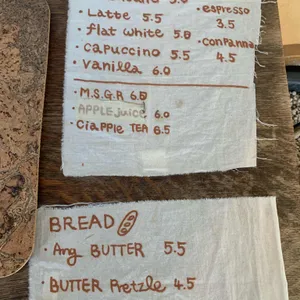 5.0
· Latte 5.5
· flat white 5.0
· capuccino 5.5
· vanilla 6.0
· espresso
3.5
· conpanna
4.5
· M.S.G.R 6.0
· APPLE juice 6.0
· Ciapple TEA 6.5
BREAD
· Ang BUTTER 5.5
· BUTTER Pretzle 4.5